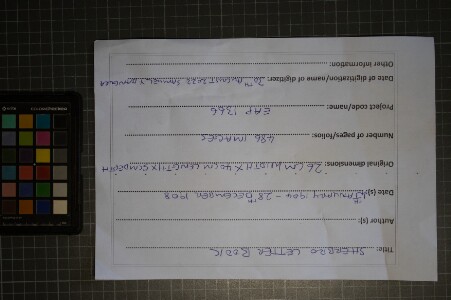 Title: SHERBRO LETTER BOOK
Author (s):
Date (s): 4TH JANUARY 1904 - 28TH DECEMBER 1908
Original dimensions: 26CM WIDTH X 40CM LENGTH X 5CM DEPTH
Number of pages/folios: 486 IMAGES
Project code/name: EAP 1366
Date of digitization/name of digitizer: SAMUEL
Other information: